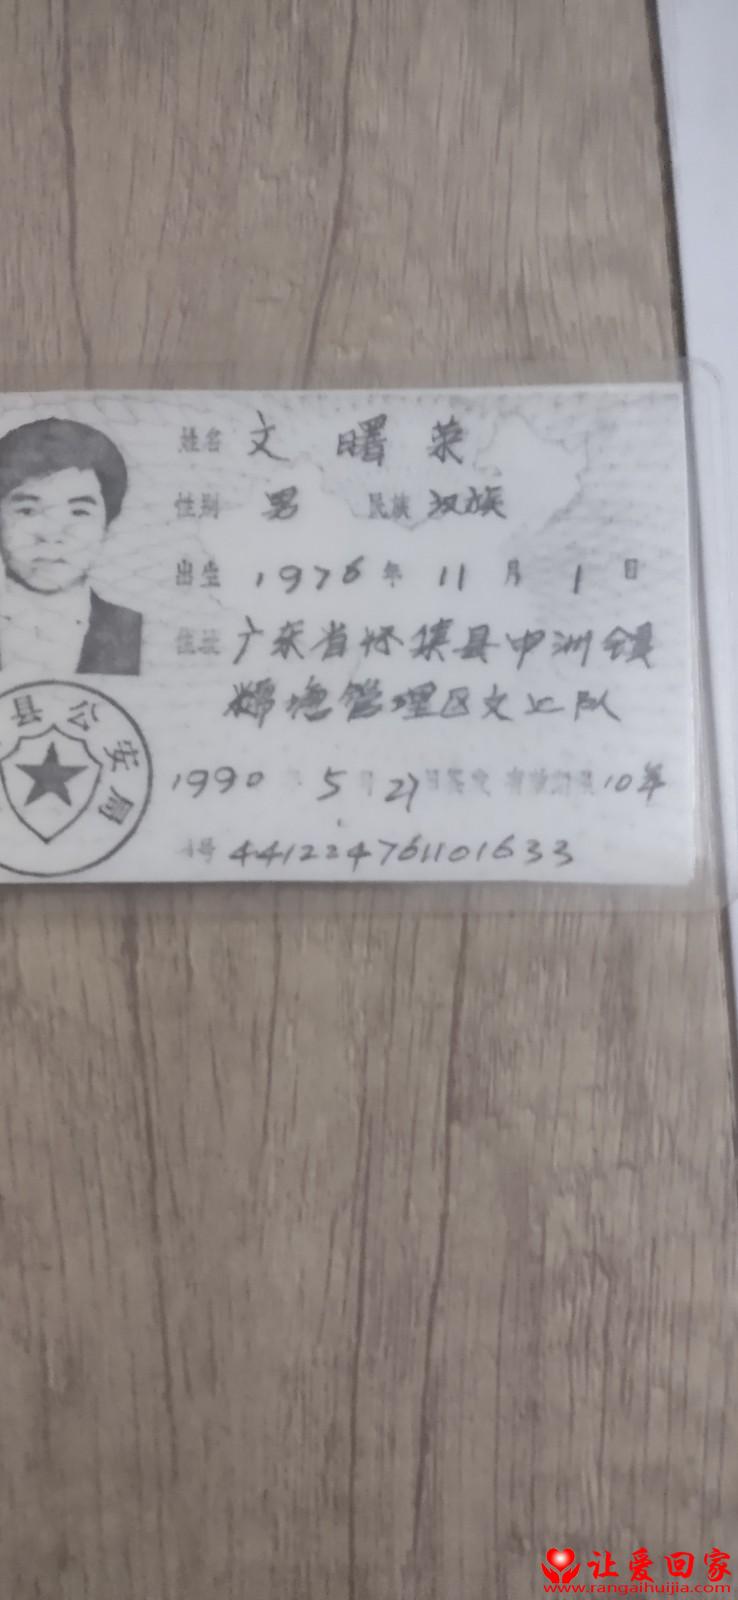 姓名 文曙荣
性别 男 民族 汉族
出生 1976年11月1日
住址 广东省怀集县中洲镇
糯塘管理区文上队
1990年5月27日签发 有效期限10年
号 441224761101633
县公安局
让爱回家
www.rangaihuijia.com